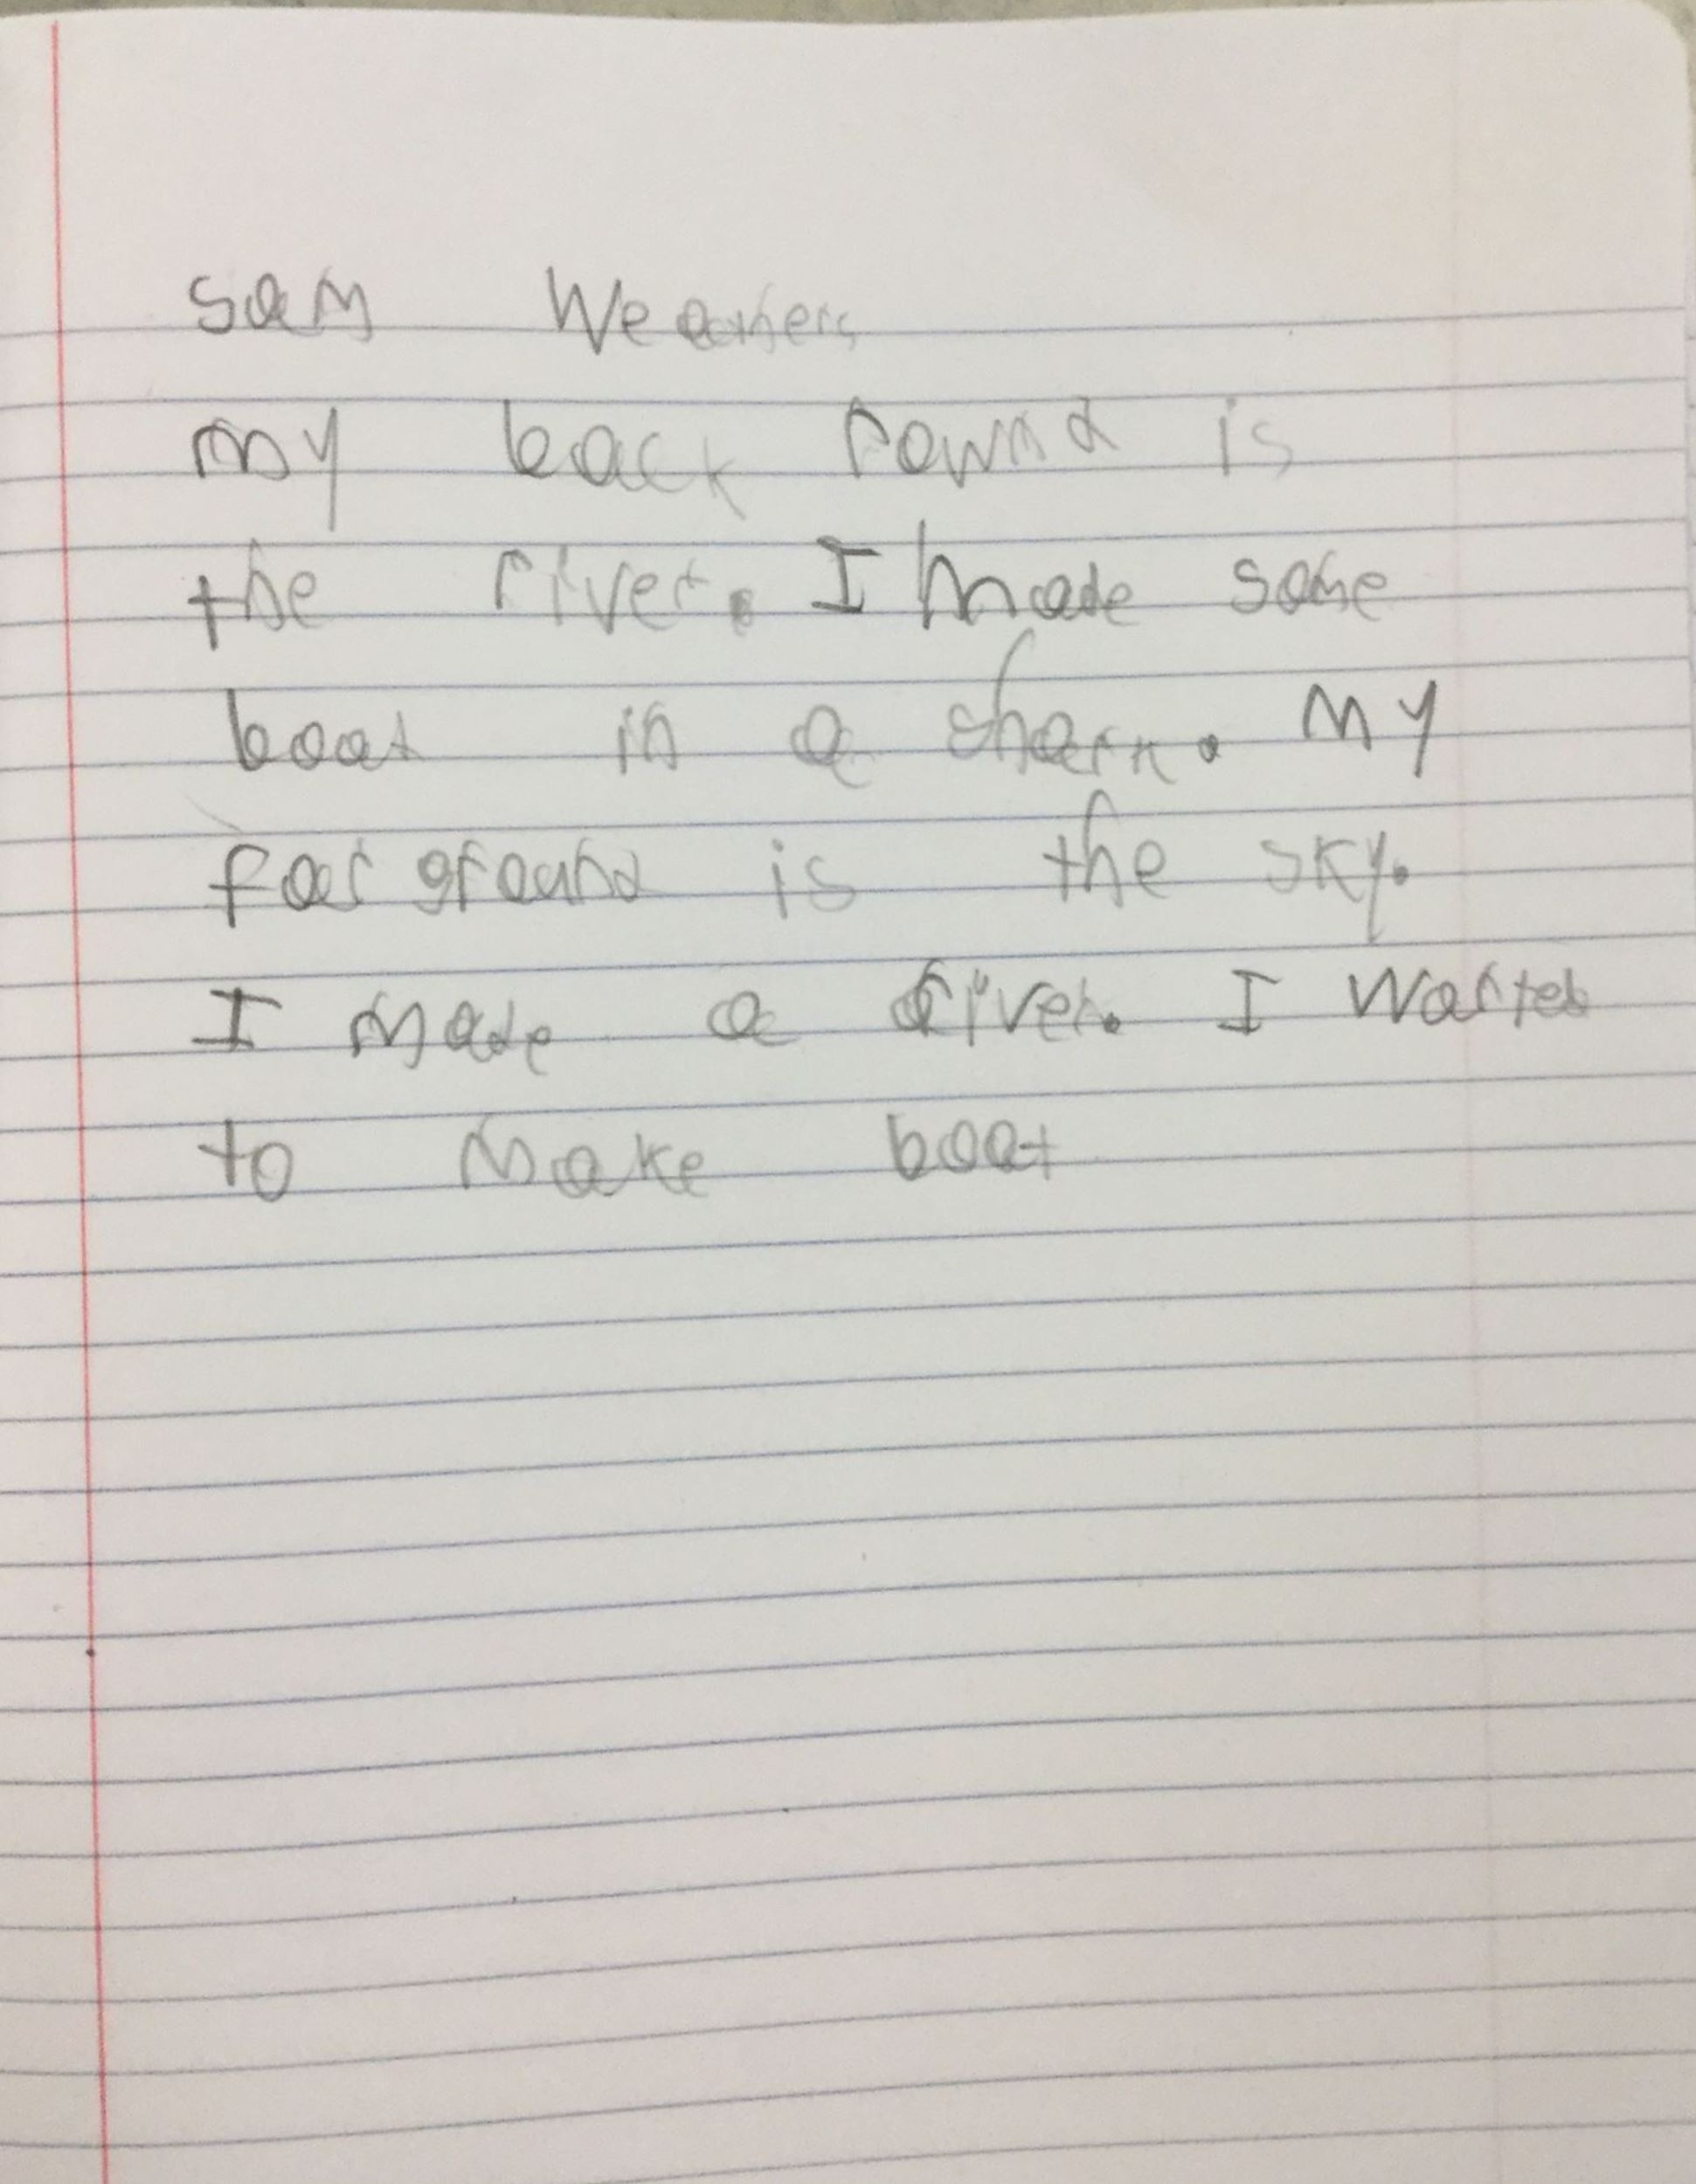 Sam Weathers
my back round is
the river. I made some
boat in a shark. My
forground is the sky.
I made a river. I wanted
to make boat